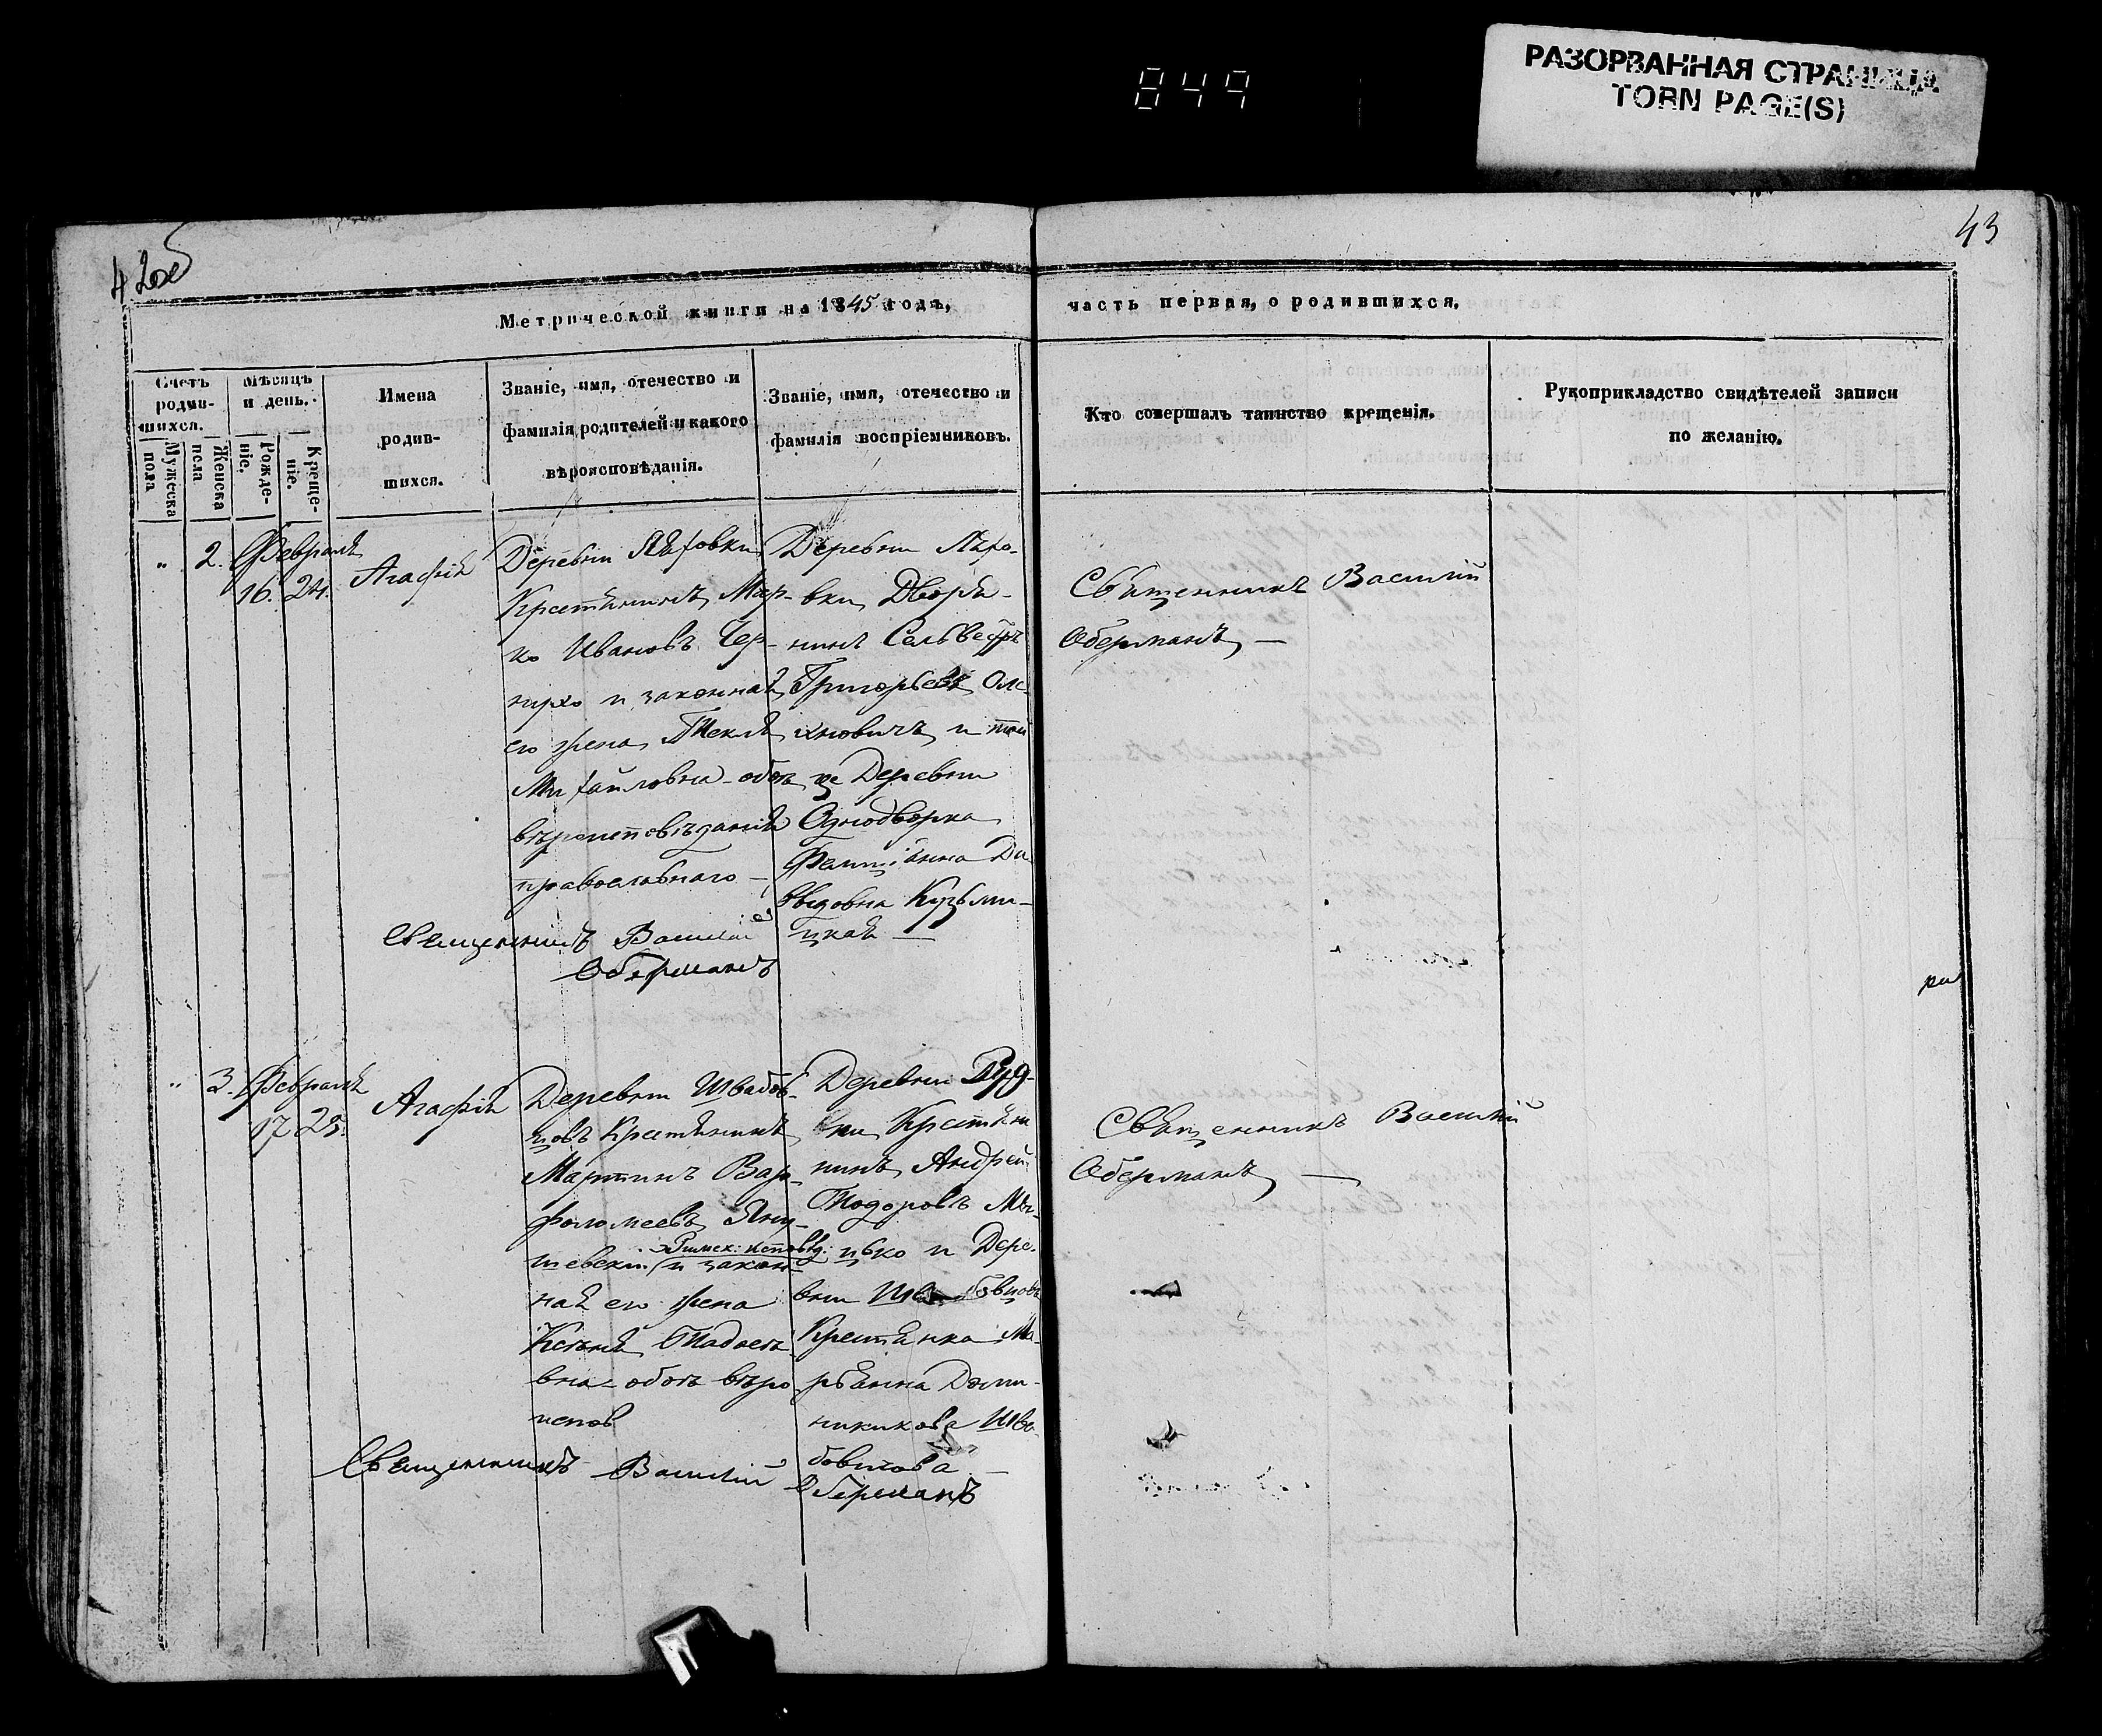 849
РАЗОРВАННАЯ СТРАНИЦА
TORN PAGE(S)
42об
43
Метрической книги на 1845 годъ,
часть первая, о родившихся.
Счетъ родив-шихся.
Мужеска пола
Женска пола
Мѣсяцъ и день.
Рожде-ніе.
Креще-ніе.
Имена
родив-
шихся.
Званіе, имя, отечество и
фамилія родителей и какого
вѣроисповѣданія.
Званіе, имя, отечество и
фамилія воспріемниковъ.
Кто совершалъ таинство крещенія.
Рукоприкладство свидѣтелей записи
по желанію.
„ 2. Февраля
16. 24.
Агафія
Деревни Ляховки
Крестьянинъ Мар-
ко Ивановъ Чер-
нухо и законная
его жена Ѳекля
Михайловна обоя
вѣроисповѣданія
православнаго —
Деревни Ляхо-
вки Дворя-
нинъ Сельвестръ
Григорьевъ Оле-
хновичъ и той
же Деревни
Однодворка
Да-
выдовна Кузьми-
цкая —
Священникъ Василій
Оберманъ
Священникъ Василій
Оберманъ —
„ 3. Февраля
17 25.
Агафія
Деревни Швабов-
цовъ Крестьянинъ
Мартинъ Вар-
фоломеевъ Яну-
шевскій Римск: исповѣд: и закон-
ная его жена
Ксенія Ѳадеева-
вна обоя вѣро
испов
Деревни Руд-
ни Крестья-
нинъ Андрей
Ѳодоровъ Мы-
цько и Дере-
вни
Крестьянка Ма-
рьянна Доми-
никикова Шва-
бовцова —
Священникъ Василій Оберманъ
Священникъ Василій
Оберманъ —
ри